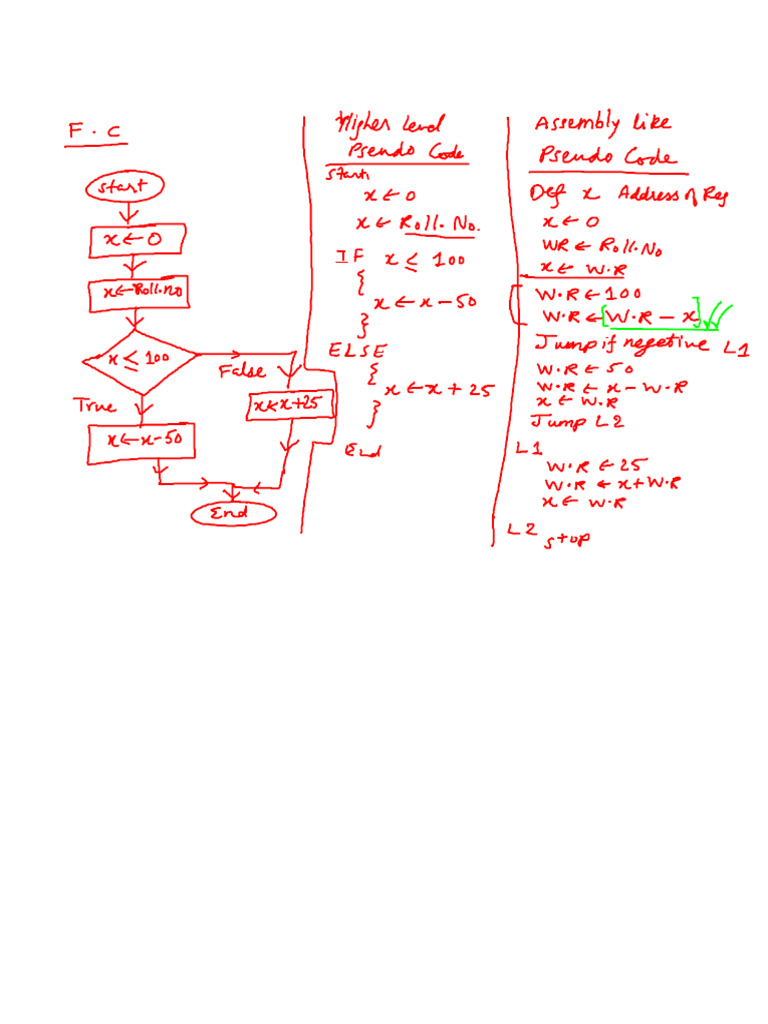 F.C
start
x ← 0
x ← Roll.no
x ≤ 100
False
True
x ← x+25
x ← x-50
End
Higher level
Pseudo Code
Start
x ← 0
x ← Roll.No.
IF x ≤ 100
{
x ← x - 50
}
ELSE
{
x ← x + 25
}
End
Assembly like
Pseudo Code
Def x Address of Reg
x ← 0
WR ← Roll.No
x ← W.R
W.R ← 100
W.R ← [W.R - x]
Jump if negetive L1
W.R ← 50
W.R ← x - W.R
x ← W.R
Jump L2
L1
W.R ← 25
W.R ← x + W.R
x ← W.R
L2
stop